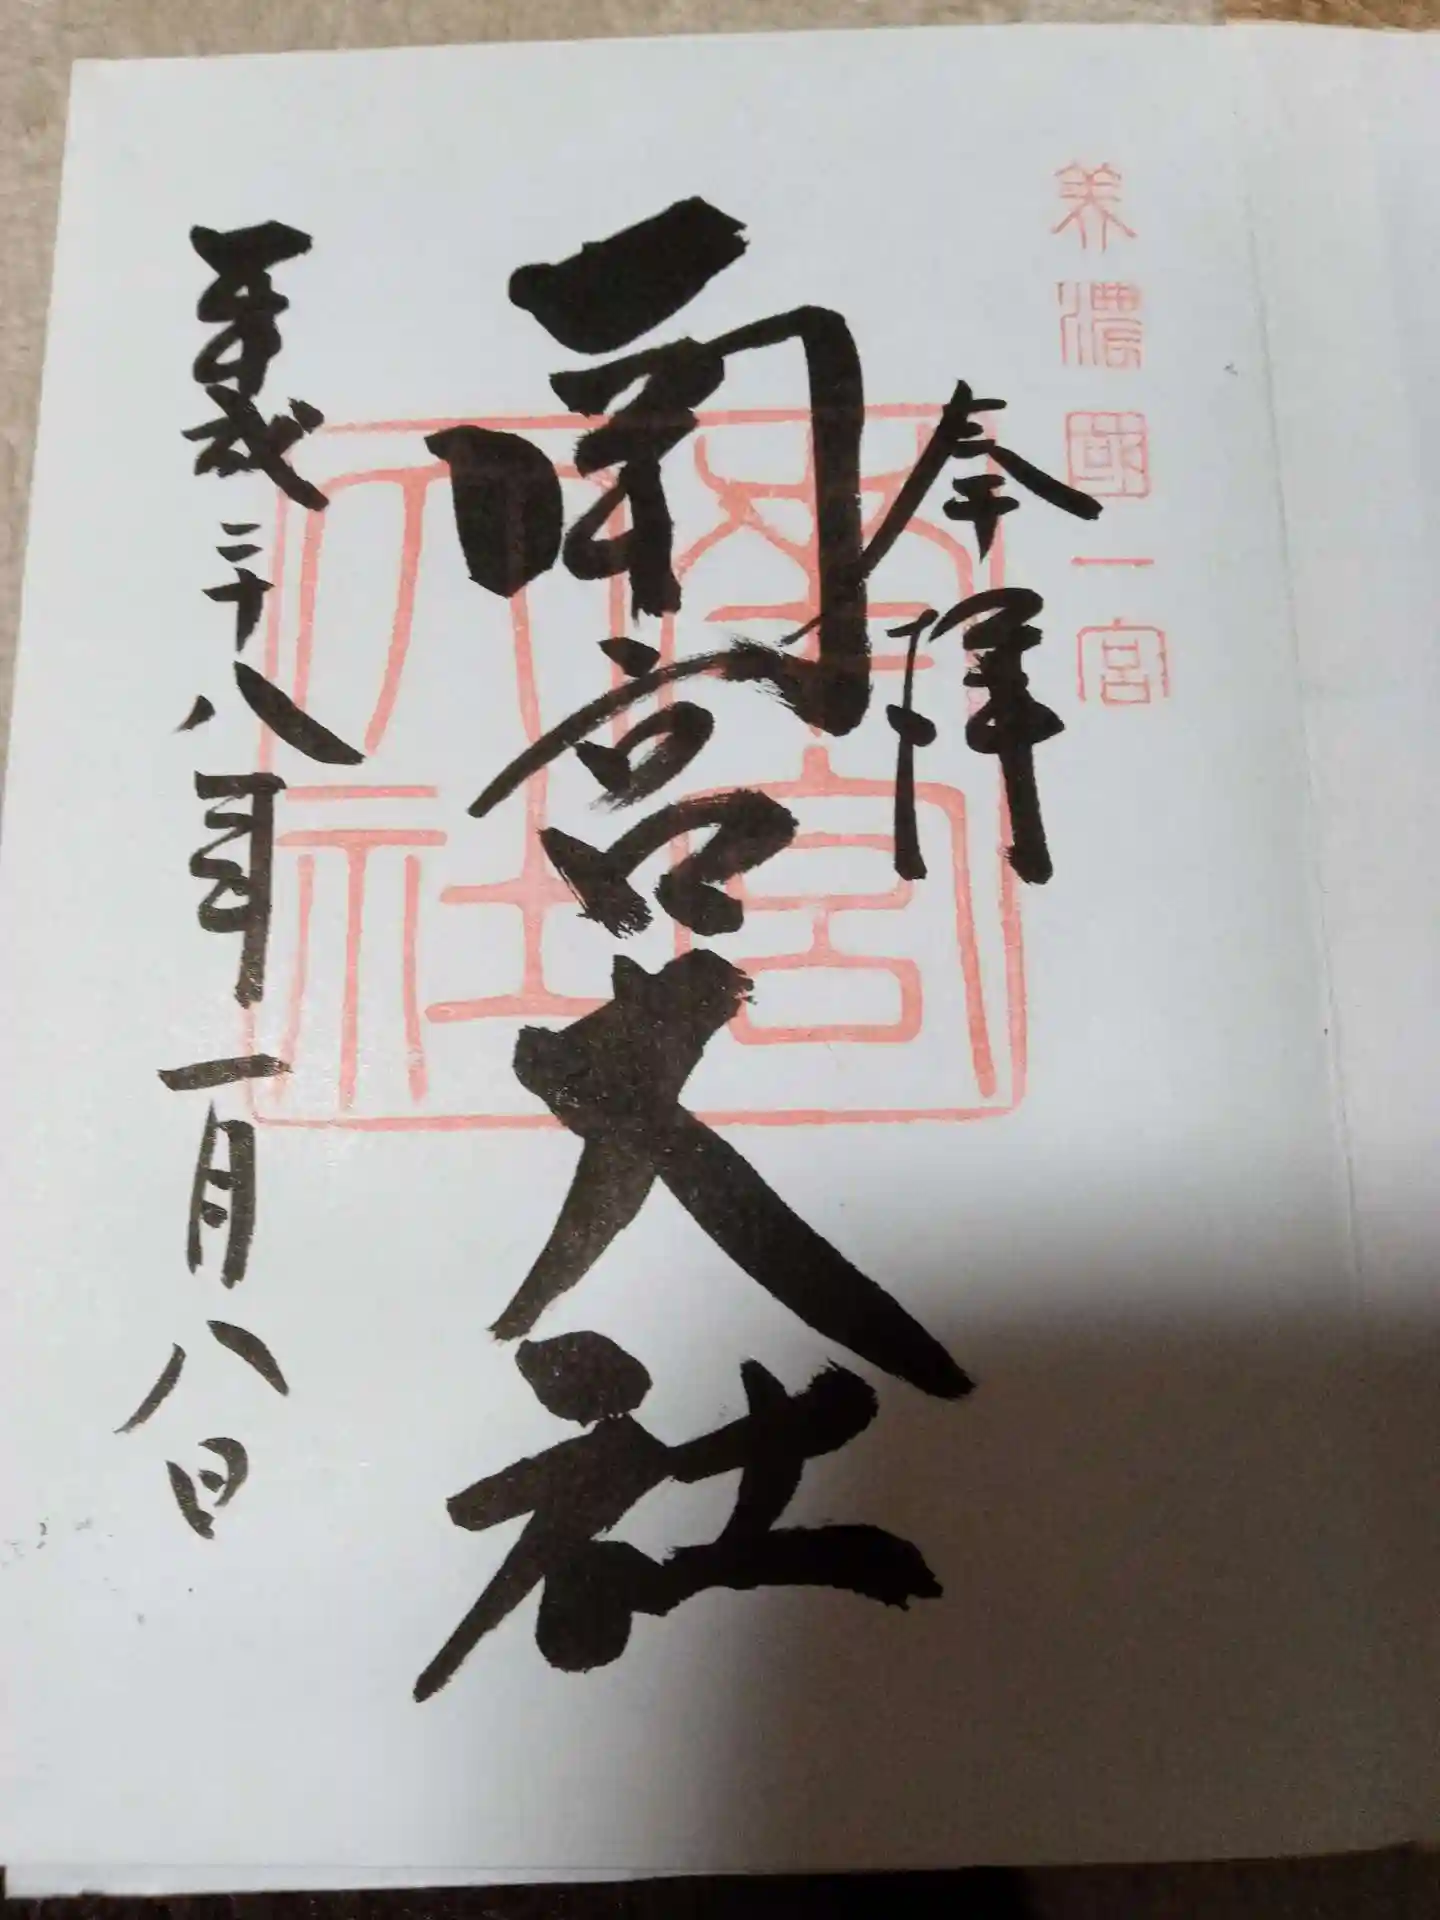 美濃國一宮
奉拝
南宮大社
南宮
大社
平成二十八年一月八日